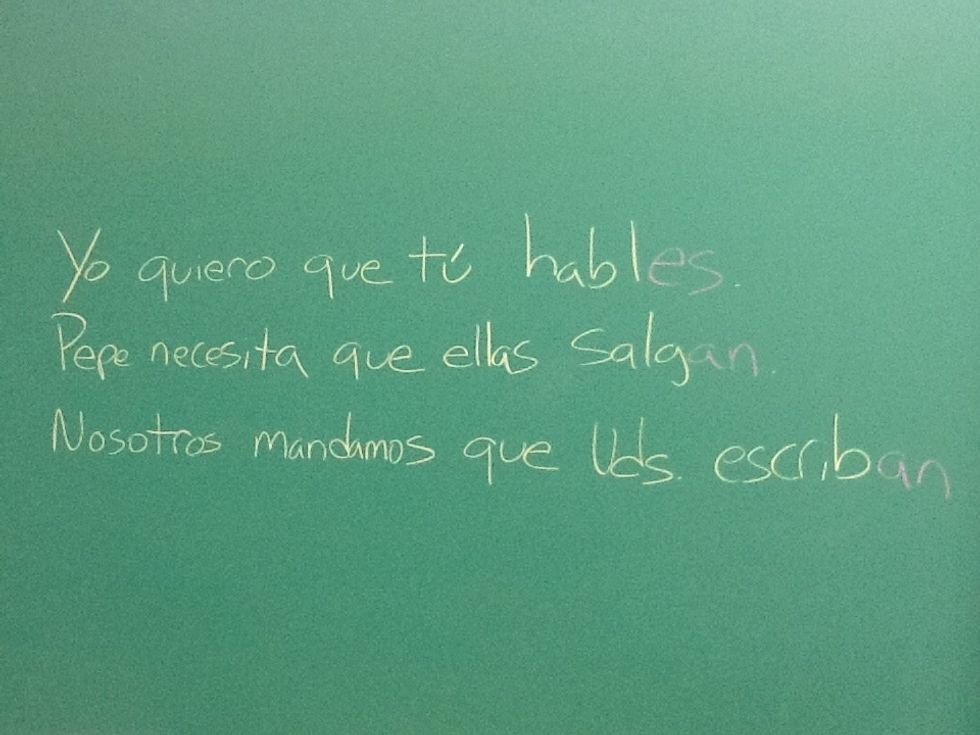 Yo quiero que tú hables.
Pepe necesita que ellas salgan.
Nosotros mandamos que Uds. escriban